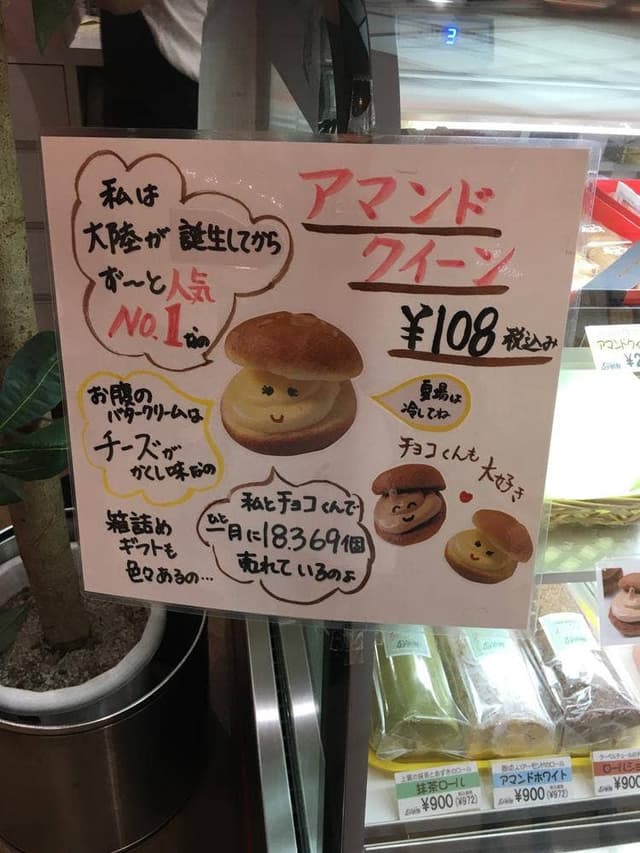 3
アマンド
クイーン
¥108 税込み
私は
大陸が 誕生してから
ず〜と人気
NO.1なの
お腹の
バタークリームは
チーズが
かくし味なの
夏場は
冷してね
チョコくんも
大好き
私とチョコくんで
ひと
一月に18.369個
売れているのよ
箱詰め
ギフトも
色々あるの…
アマンドクイ
抹茶ロール
¥900 (¥972)
アマンドホワイト
¥900 (¥972)
¥900